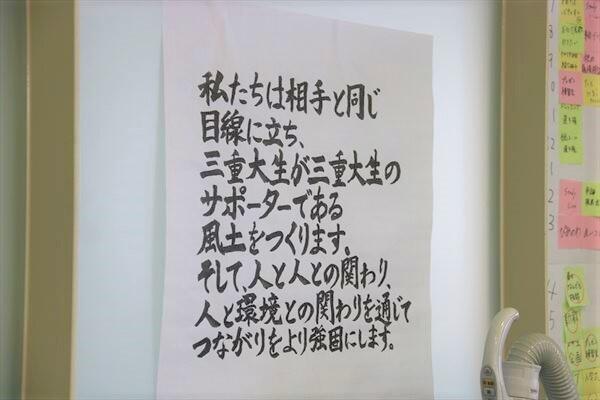 私たちは相手と同じ
目線に立ち、
三重大生が三重大生の
サポーターである
風土をつくります。
そして、人と人との関わり、
人と環境との関わりを通じて
つながりをより強固にします。